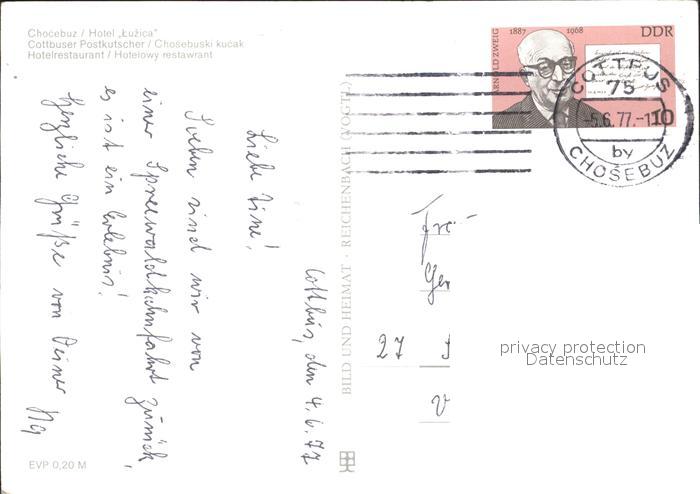 Choćebuz / Hotel „Łužica"
Cottbuser Postkutscher / Chośebuski kućak
Hotelrestaurant / Hotelowy restawrant
Cottbus, den 4.6.77
Liebe Tine!
Soeben sind wir von
einer Spreewaldkahnfahrt zurück,
es ist ein Erlebnis!
Herzliche Grüße von Deiner
EVP 0,20 M
BILD UND HEIMAT · REICHENBACH (VOGTL)
ARNOLD ZWEIG
1887 1968
DDR
10
COTTBUS
75
-5.6.77.-1
by
CHOŚEBUZ
Fr
Ger
27
V
privacy protection
Datenschutz